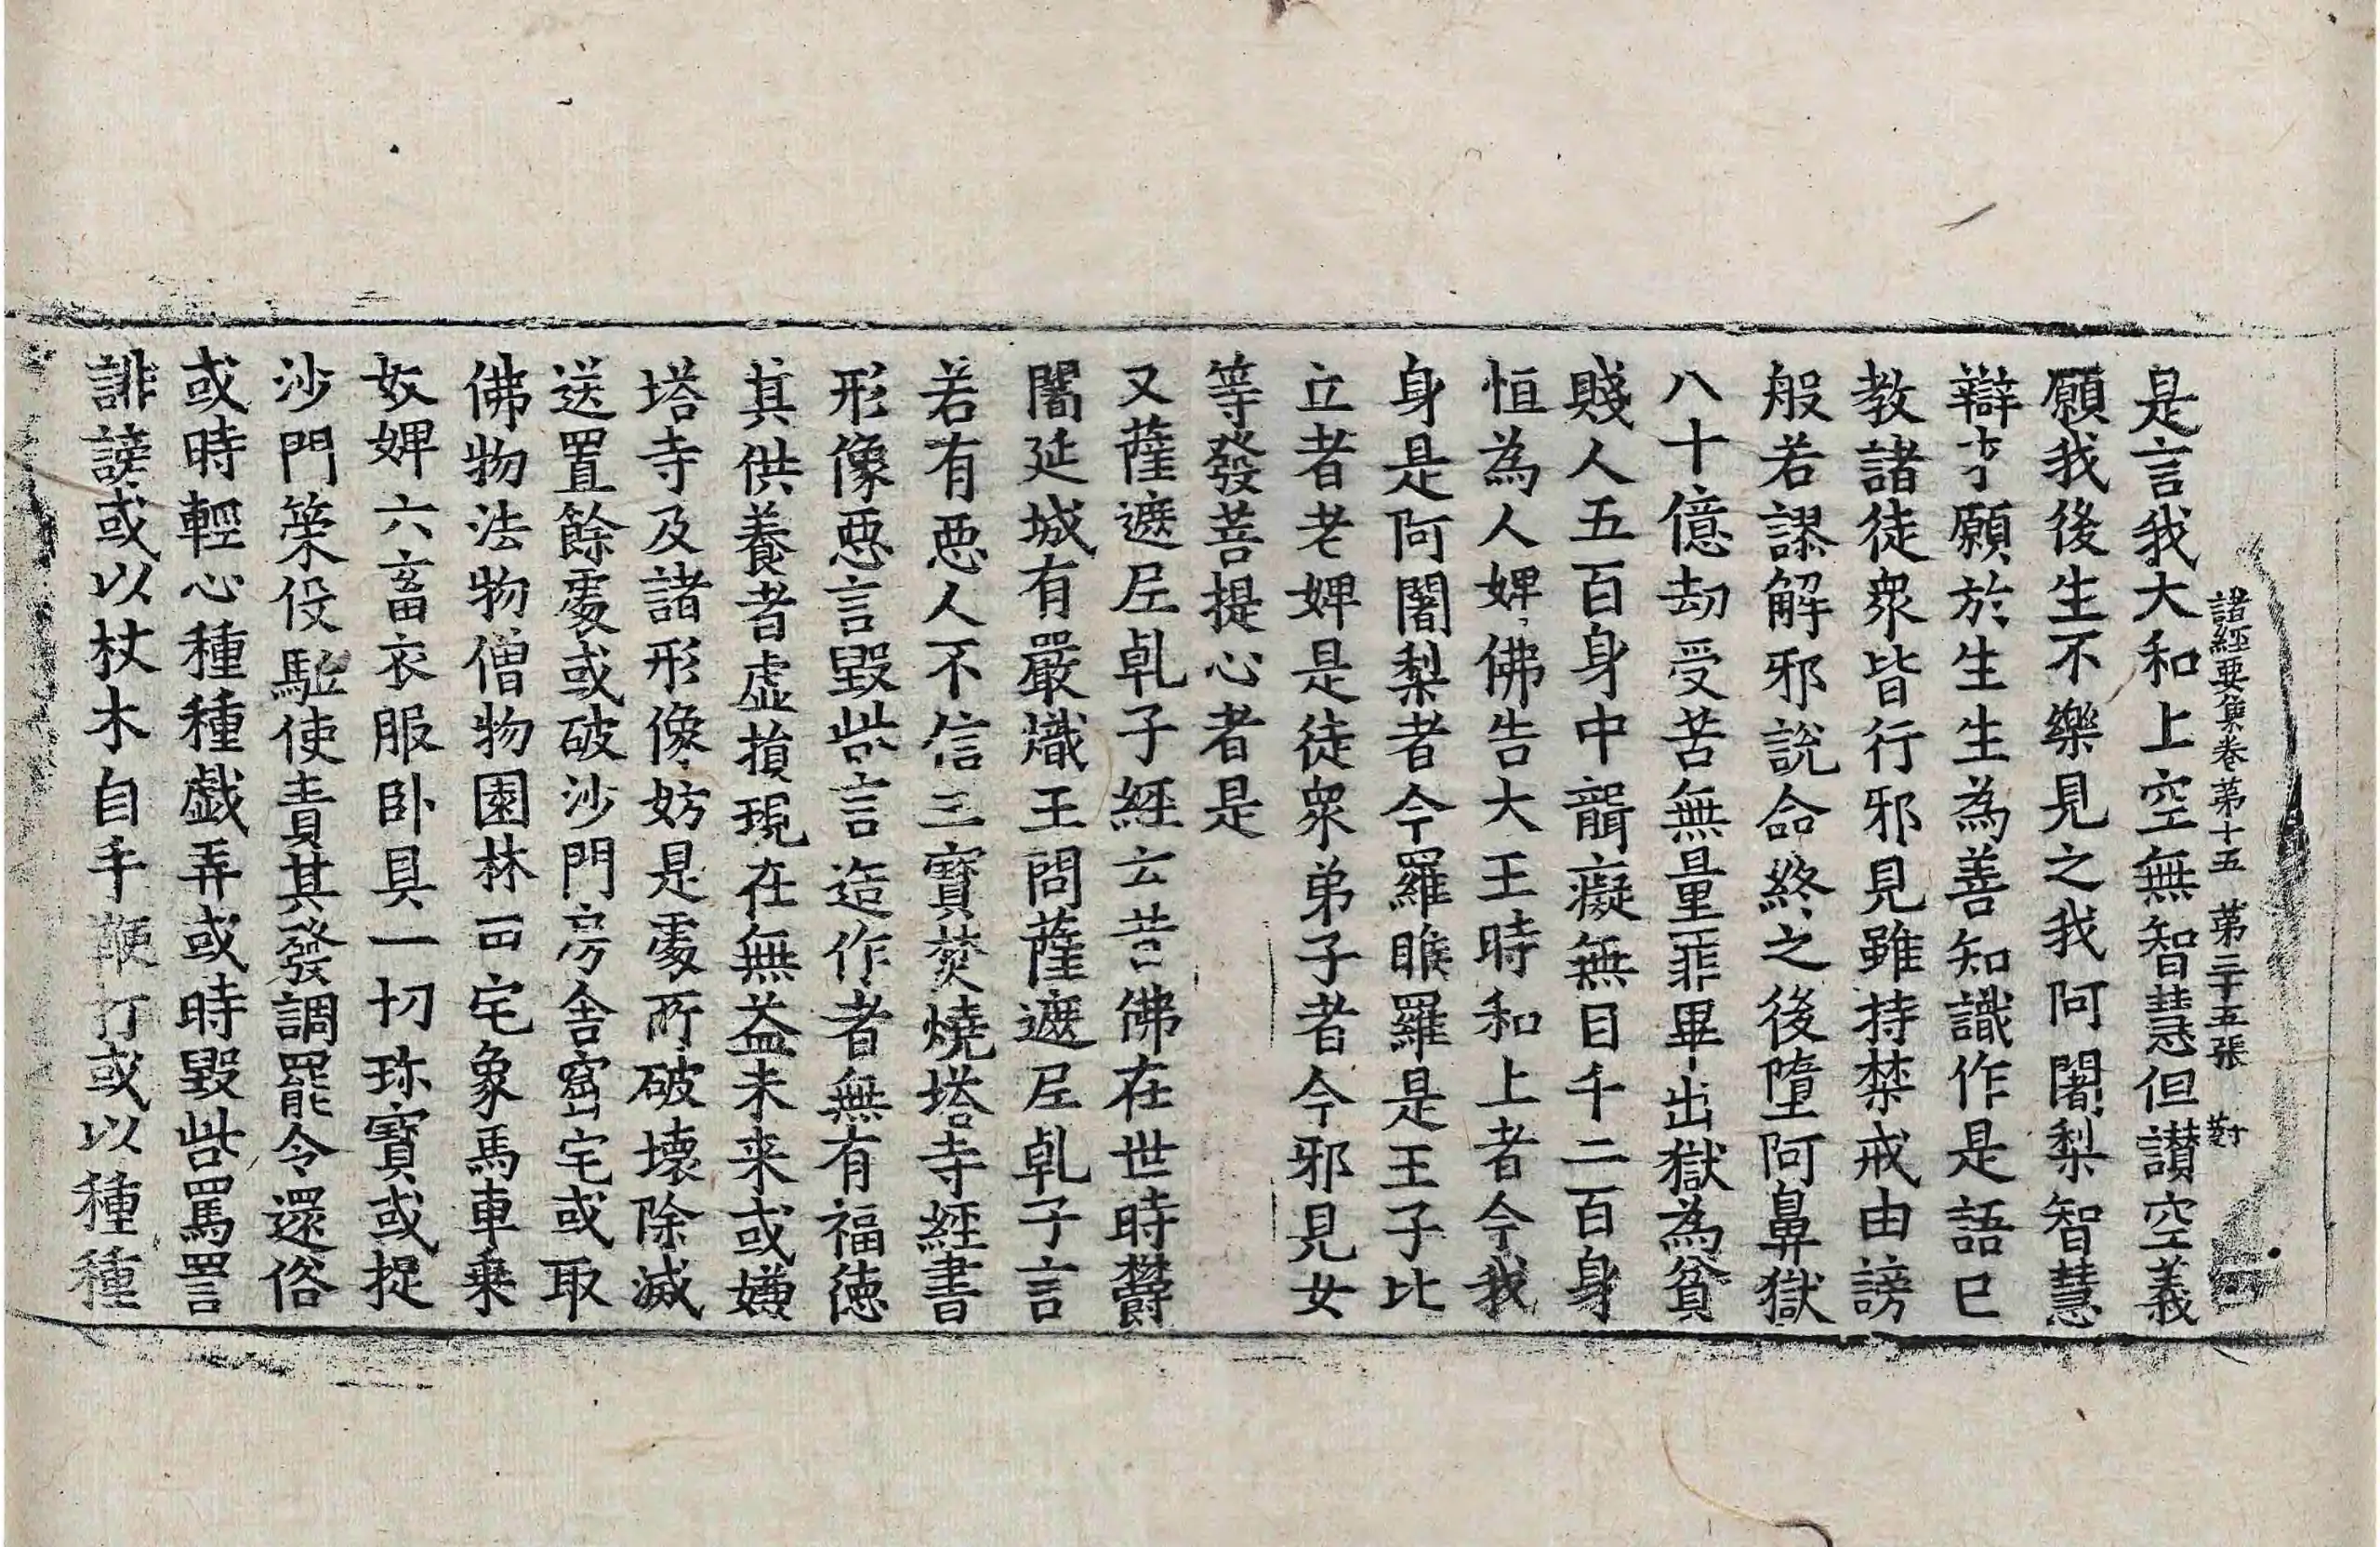 諸經要集卷第十五　第二十五張　對
是言我大和上空無智慧但讃空義
願我後生不樂見之我阿闍梨智慧
辯才願於生生為善知識作是語已
教諸徒衆皆行邪見雖持禁戒由謗
般若謬解邪說命終之後墮阿鼻獄
八十億劫受苦無量罪畢出獄為貧
賤人五百身中聾癡無目千二百身
恒為人婢佛告大王時和上者今我
身是阿闍梨者今羅睺羅是王子比
立者老婢是徒衆弟子者今邪見女
等發菩提心者是
又薩遮尼乹子經云昔佛在世時欝
闍延城有嚴熾王問薩遮尼乹子言
若有惡人不信三寶焚燒塔寺經書
形像惡言毀呰言造作者無有福德
其供養者虛損現在無益未来或嫌
塔寺及諸形像妨是處所破壞除滅
送置餘處或破沙門房舍窟宅或取
佛物法物僧物園林田宅象馬車乗
奴婢六畜衣服卧具一切珎寶或捉
沙門策役駈使責其發調罷令還俗
或時輕心種種戯弄或時毀呰罵詈
誹謗或以杖木自手鞭打或以種種